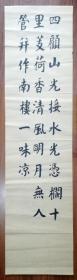 四顧山光接水光憑欄十
里芰荷香清風明月無人
管并作南樓一味凉